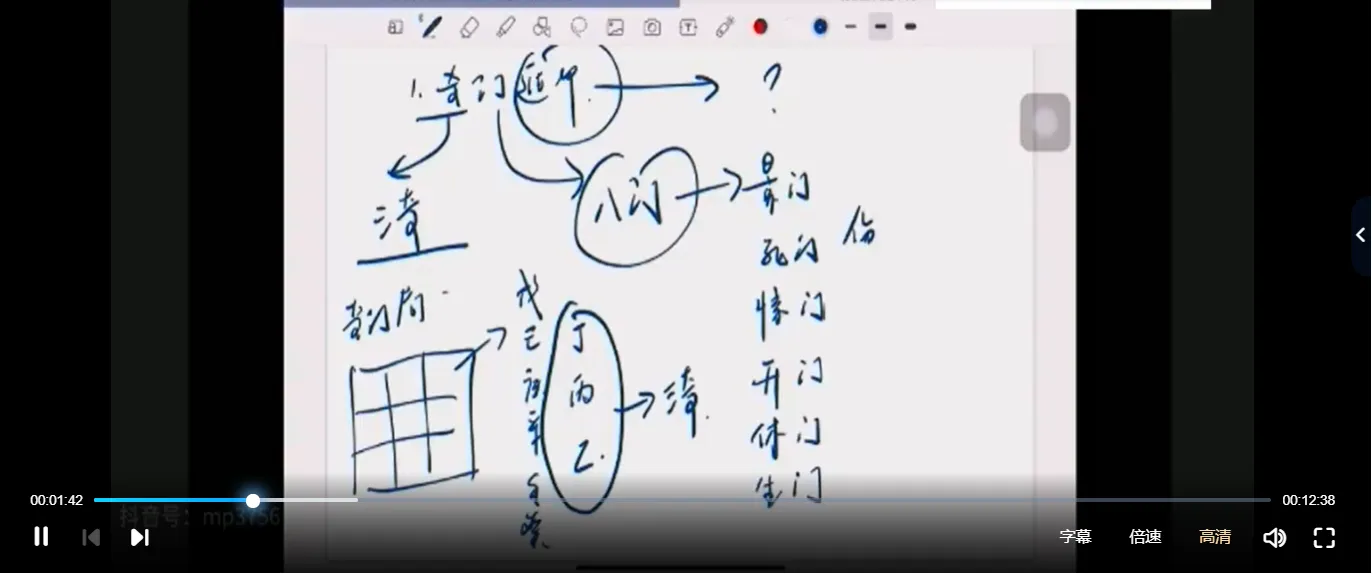 1. 奇门遁甲. → ?
三奇
八门 → 景门
死门 伤
惊门
开门
休门
生门
奇门局
戊
己
庚
辛
壬
癸
丁
丙
乙.
三奇.
00:01:42
00:12:38
抖音号: mp3756
字幕 倍速 高清